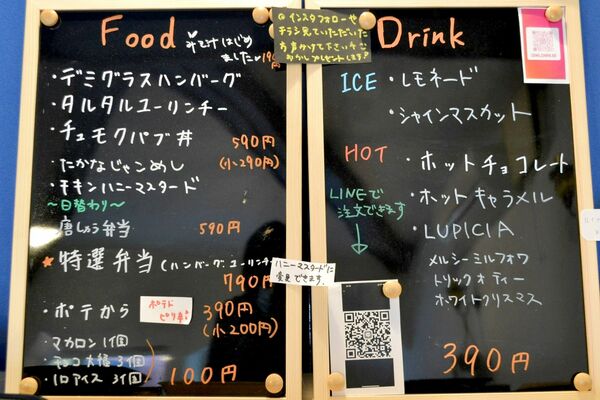 Food
はじめ
ました
・デミグラスハンバーグ
・タルタルユーリンチー
・チュモクパブ丼 590円
・たかなじゃんめし (小290円)
・チキンハニーマスタード
〜日替わり〜
唐しゅう弁当 590円
★特選弁当(ハンバーグ、ユーリンチー
790円
ハニーマスタードに
変更できます。
・ポテから ポテト
ピリ辛 390円
(小200円)
マカロン 1個
チョコ大福 3個
一口アイス 3個
100円
@インスタフォローや
チラシ見ていただいた
方声かけて下さい
プレゼントします
Drink
ICE ・レモネード
・シャインマスカット
HOT ・ホットチョコレート
・ホットキャラメル
・LUPICIA
メルシーミルフォワ
トリックオアティー
ホワイトクリスマス
LINEで
注文できます
390円